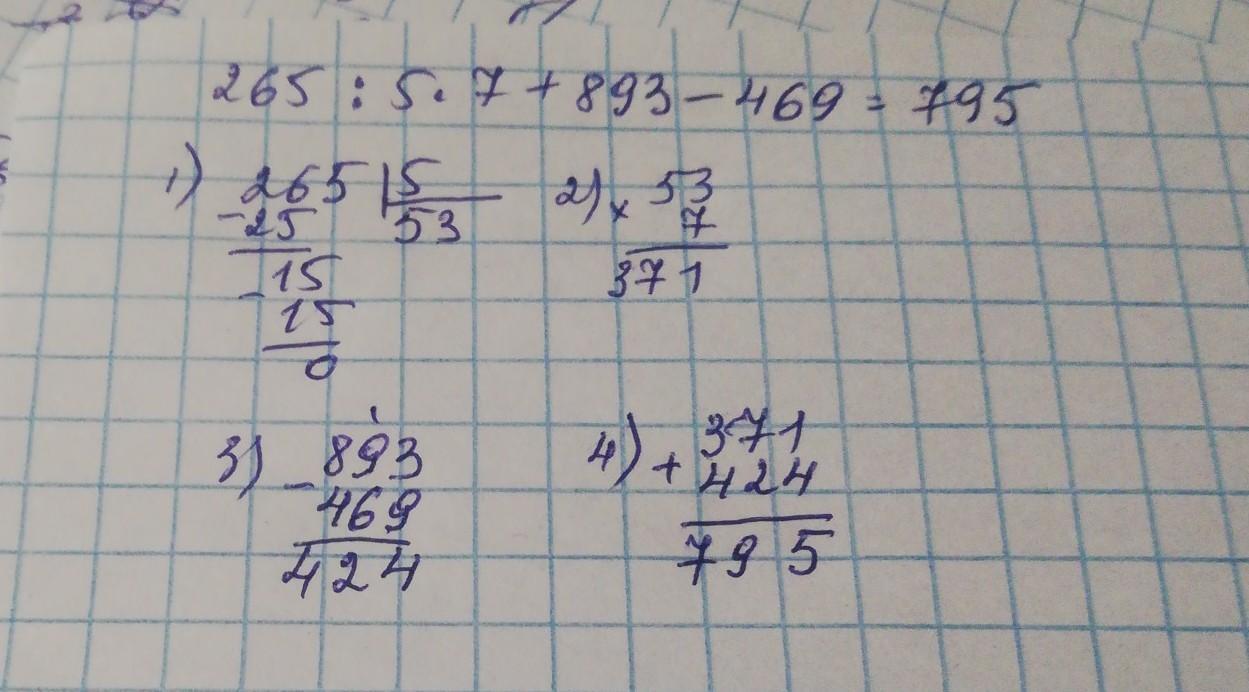 265 : 5 · 7 + 893 - 469 = 795
1) 265 | 5
- 25 53
- 15
15
0
2) × 53
7
371
3) - 893
469
424
4) + 371
424
795